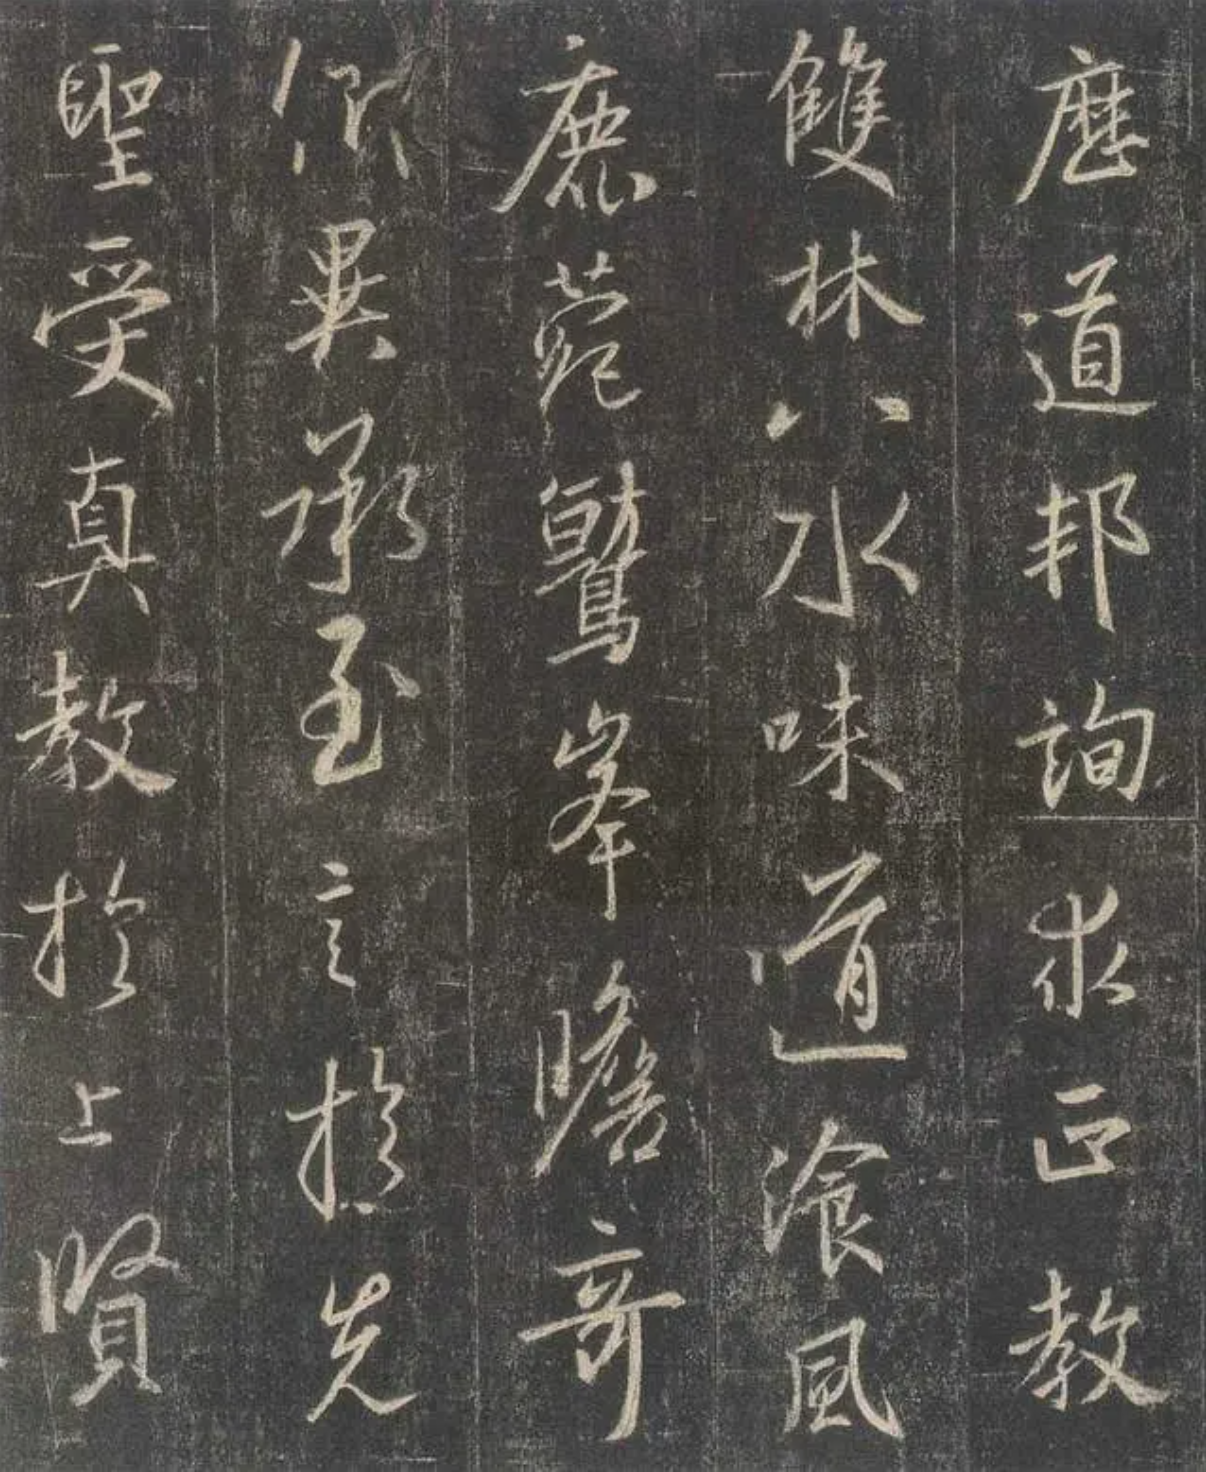 歷道邦詢求正教
雙林八水味道飡風
鹿菀鷲峯瞻奇
仰異承至言於先
聖受真教於上賢